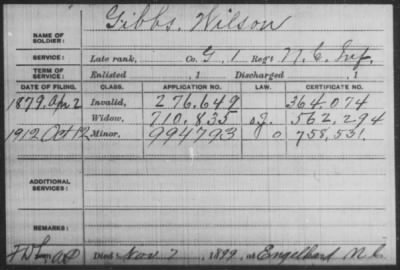 Gibbs, Wilson
NAME OF SOLDIER:
SERVICE: Late rank, Co. G, 1 Reg't N.C. Inf.
TERM OF SERVICE: Enlisted , 1 Discharged , 1
DATE OF FILING. CLASS. APPLICATION NO. LAW. CERTIFICATE NO.
1879, Apr 2 Invalid, 276.649 364.074
Widow, 710.835 562,294
1912 Oct 12 Minor, 994793 0 758,531.
ADDITIONAL SERVICES:
REMARKS:
Died Nov. 7, 1899, at Engelhard N.C.